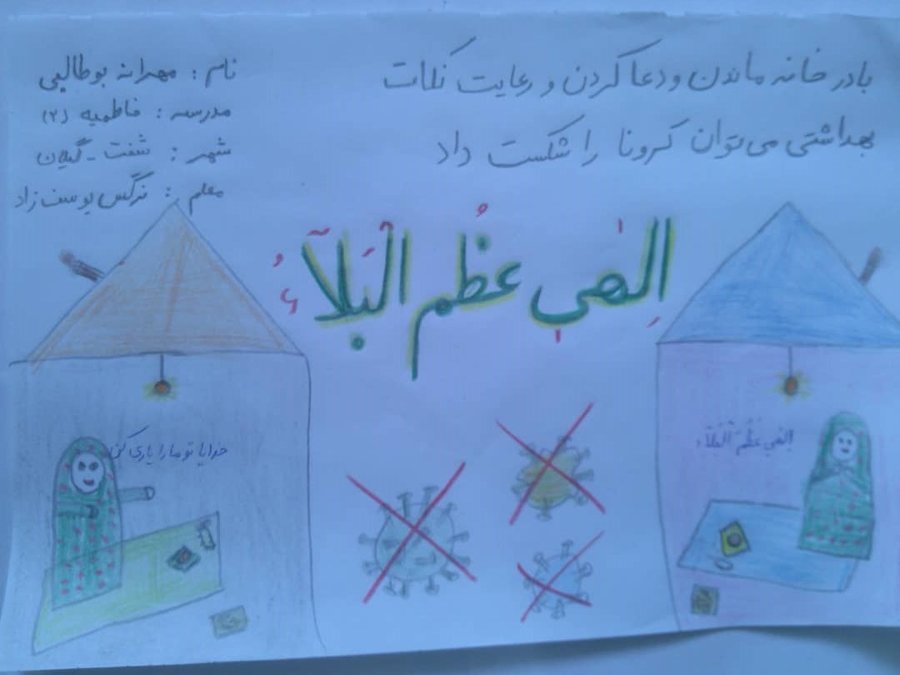 با در خانه ماندن و دعا کردن و رعایت نکات
بهداشتی می‌توان کرونا را شکست داد
نام : مهرانه بوطالبی
مدرسه : فاطمیه (۲)
شهر : شفت - گیلان
معلم : نرگس یوسف زاد
اِلٰهی عَظُمَ الْبَلآءُ
الهی عَظُمَ الْبَلآء
خدایا تو ما را یاری کن